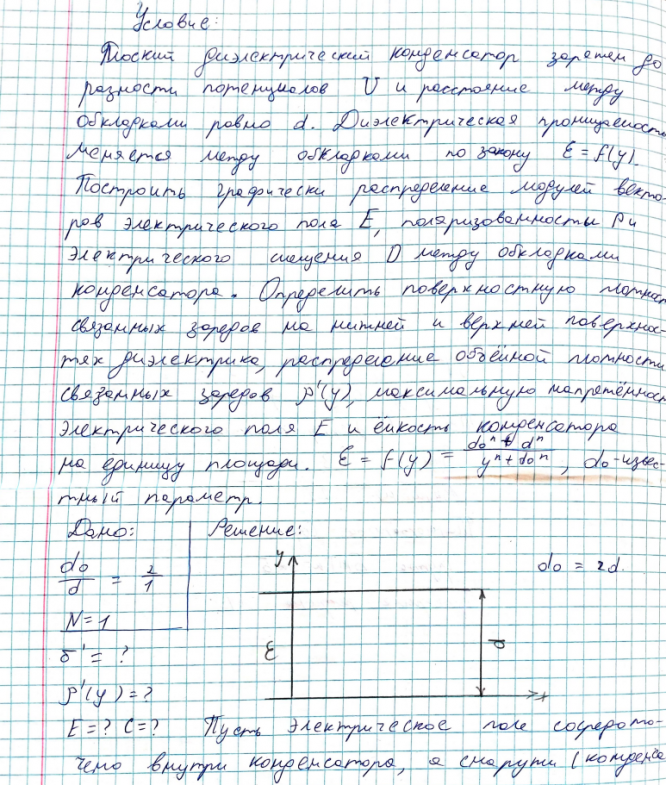 Условие:
Плоский диэлектрический конденсатор заряжен до
разности потенциалов U и расстояние между
обкладками равно d. Диэлектрическая проницаемость
меняется между обкладками по закону ε = f(y).
Построить графически распределение модулей векто-
ров электрического поля E, поляризованности P и
электрического смещения D между обкладками
конденсатора. Определить поверхностную плотност
связанных зарядов на нижней и верхней поверхнос-
тях диэлектрика, распределение объёмной плотности
связанных зарядов ρ'(y), максимальную напряжённос
электрического поля E и ёмкость конденсатора
на единицу площади. ε = f(y) = (d₀ⁿ + dⁿ)/(yⁿ + d₀ⁿ), d₀ - извес-
тный параметр.
Дано: Решение:
d₀/d = 2/1
N = 1
σ' = ?
ρ'(y) = ?
E = ? C = ?
y
d₀ = 2d.
ε
d
x
Пусть электрическое поле сосредото-
чено внутри конденсатора, а снаружи (конденса